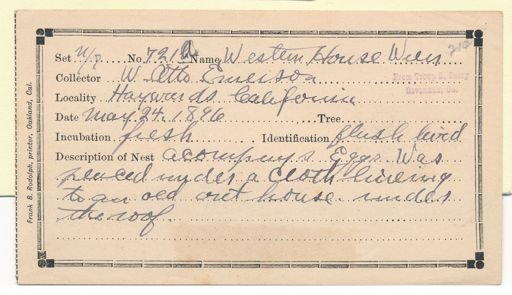 Set N/p No. 721a Name Western House Wren 210
Collector W. Otto Emerson
From Troup D. Perry
Savannah, Ga.
Locality Haywards California
Date May 24. 1896 Tree
Incubation fresh Identification flush bird
Description of Nest acompany's Eggs. Was
placed under a cloth lineing
to an old out house under
the roof.
Frank B. Rudolph, printer, Oakland, Cal.